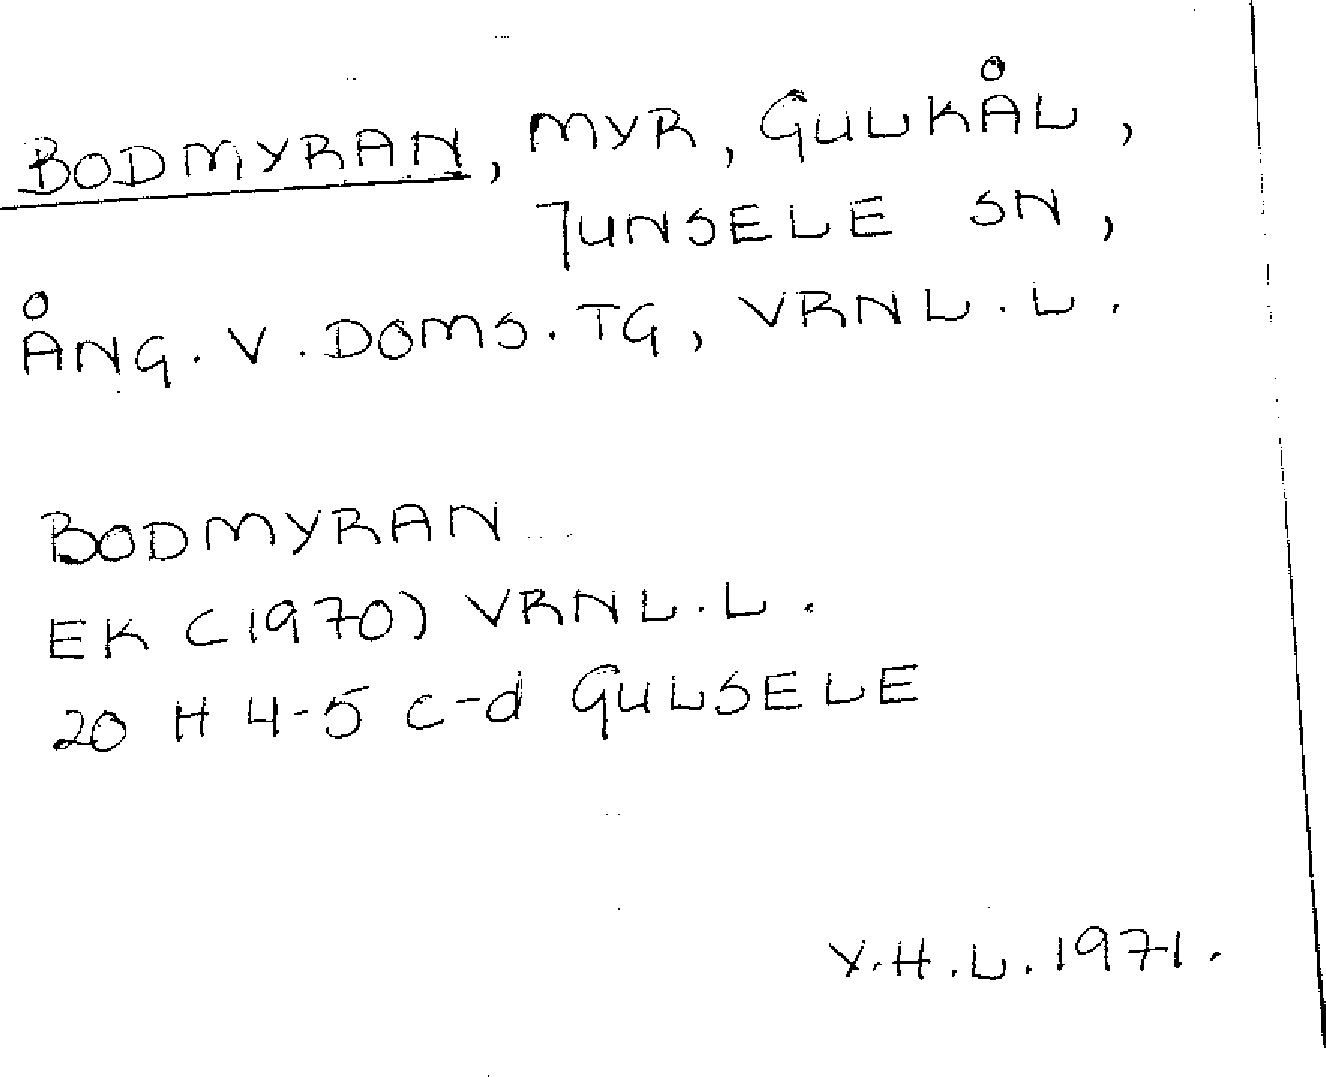 BODMYRAN, MYR, GULKÅL,
JUNSELE SN,
ÅNG. V. DOMS. TG, VRNL. L.
BODMYRAN
EK (1970) VRNL. L.
20 H 4-5 c-d GULSELE
Y.H.L. 1971.